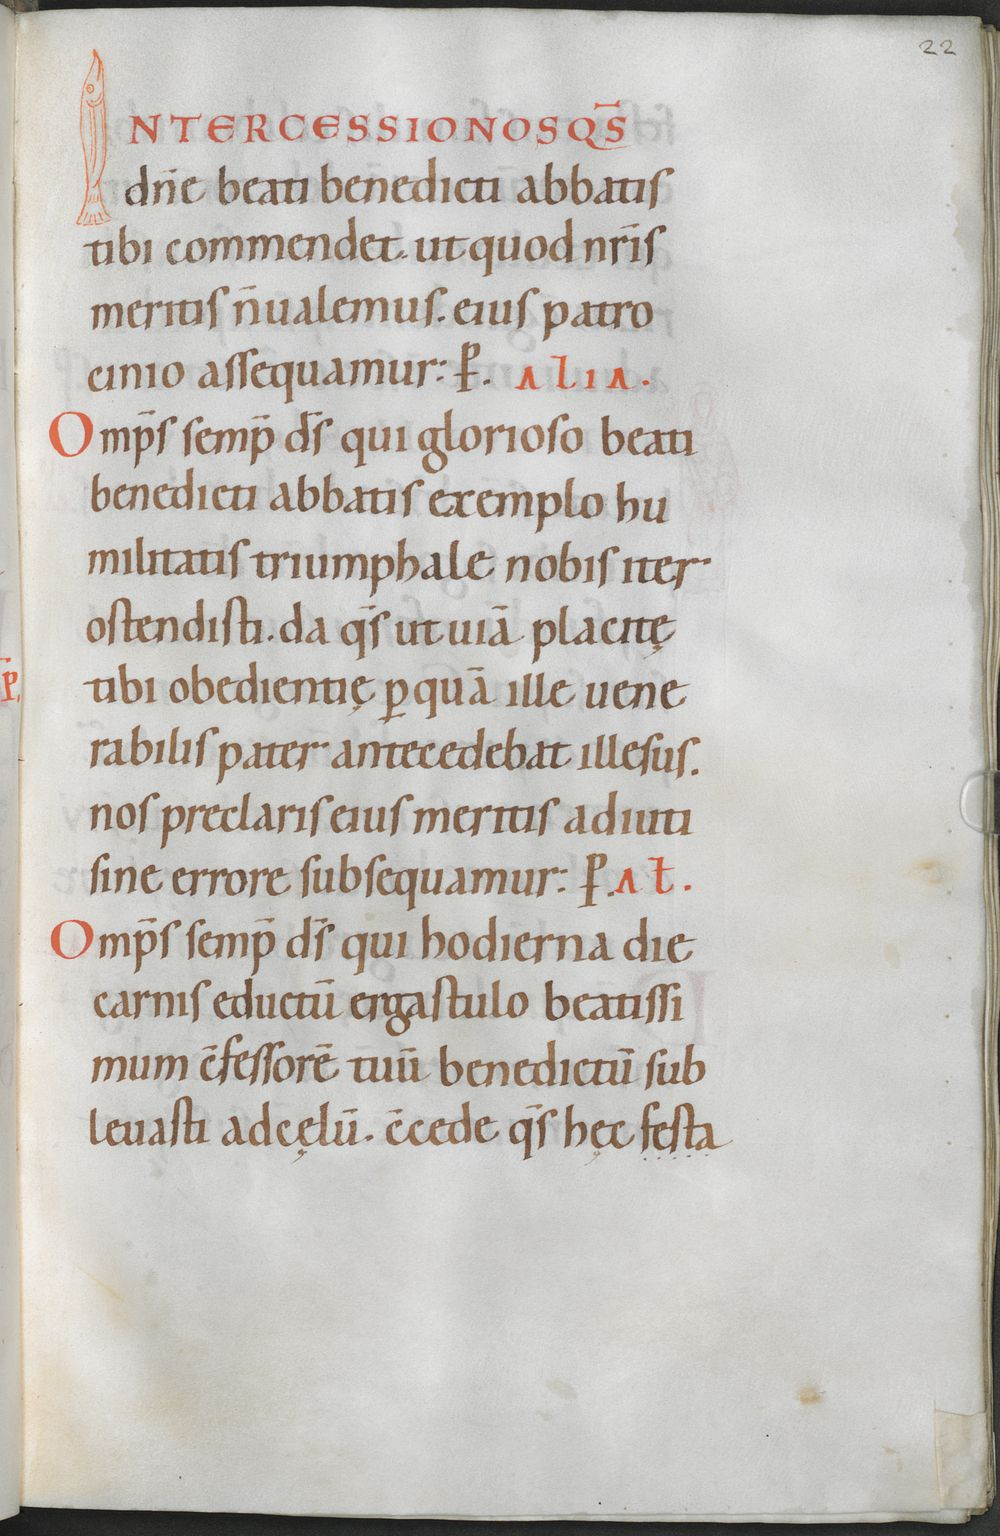 22
INTERCESSIO NOS QS̄
dn̄e beati benedicti abbatis
tibi commendet. ut quod nr̄is
meritis n̄ ualemus. eius patro
cinio assequamur: P̄. ALIA.
Omp̄s semp̄ ds̄ qui glorioso beati
benedicti abbatis exemplo hu
militatis triumphale nobis iter
ostendisti. da qs̄ ut uiā placitę
tibi obedientię ꝑ quā ille uene
rabilis pater antecedebat illesus.
nos preclaris eius meritis adiuti
sine errore subsequamur: P̄. Ał.
Omp̄s semp̄ ds̄ qui hodierna die
carnis eductū ergastulo beatissi
mum c̄fessorē tuū benedictū sub
leuasti ad cęlū. c̄cede qs̄ hęc festa